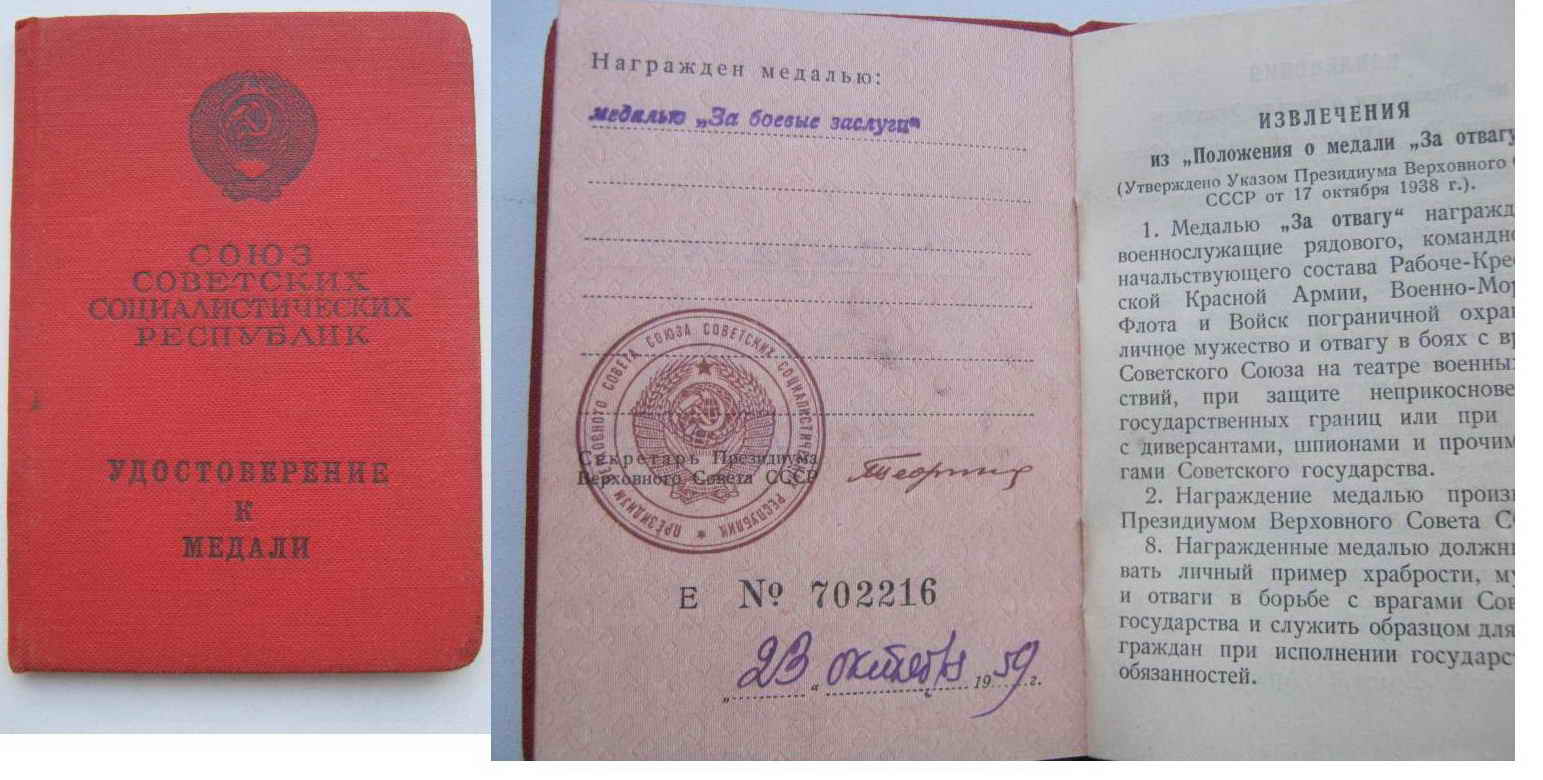 СОЮЗ
СОВЕТСКИХ
СОЦИАЛИСТИЧЕСКИХ
РЕСПУБЛИК
УДОСТОВЕРЕНИЕ
К
МЕДАЛИ
Награжден медалью:
медалью „За боевые заслуги“
ПРЕЗИДИУМ ВЕРХОВНОГО СОВЕТА СОЮЗА СОВЕТСКИХ СОЦИАЛИСТИЧЕСКИХ РЕСПУБЛИК
Секретарь Президиума
Верховного Совета СССР
Е № 702216
„23“ октября 1959 г.
ИЗВЛЕЧЕНИЯ
из „Положения о медали „За отвагу
(Утверждено Указом Президиума Верховного
СССР от 17 октября 1938 г.).
1. Медалью „За отвагу“ награжд
военнослужащие рядового, командно
начальствующего состава Рабоче-Крес
ской Красной Армии, Военно-Мор
Флота и Войск пограничной охра
личное мужество и отвагу в боях с вр
Советского Союза на театре военны
ствий, при защите неприкоснове
государственных границ или при
с диверсантами, шпионами и прочим
гами Советского государства.
2. Награждение медалью произ
Президиумом Верховного Совета СС
8. Награжденные медалью должн
вать личный пример храбрости, му
и отваги в борьбе с врагами Сов
государства и служить образцом для
граждан при исполнении государс
обязанностей.